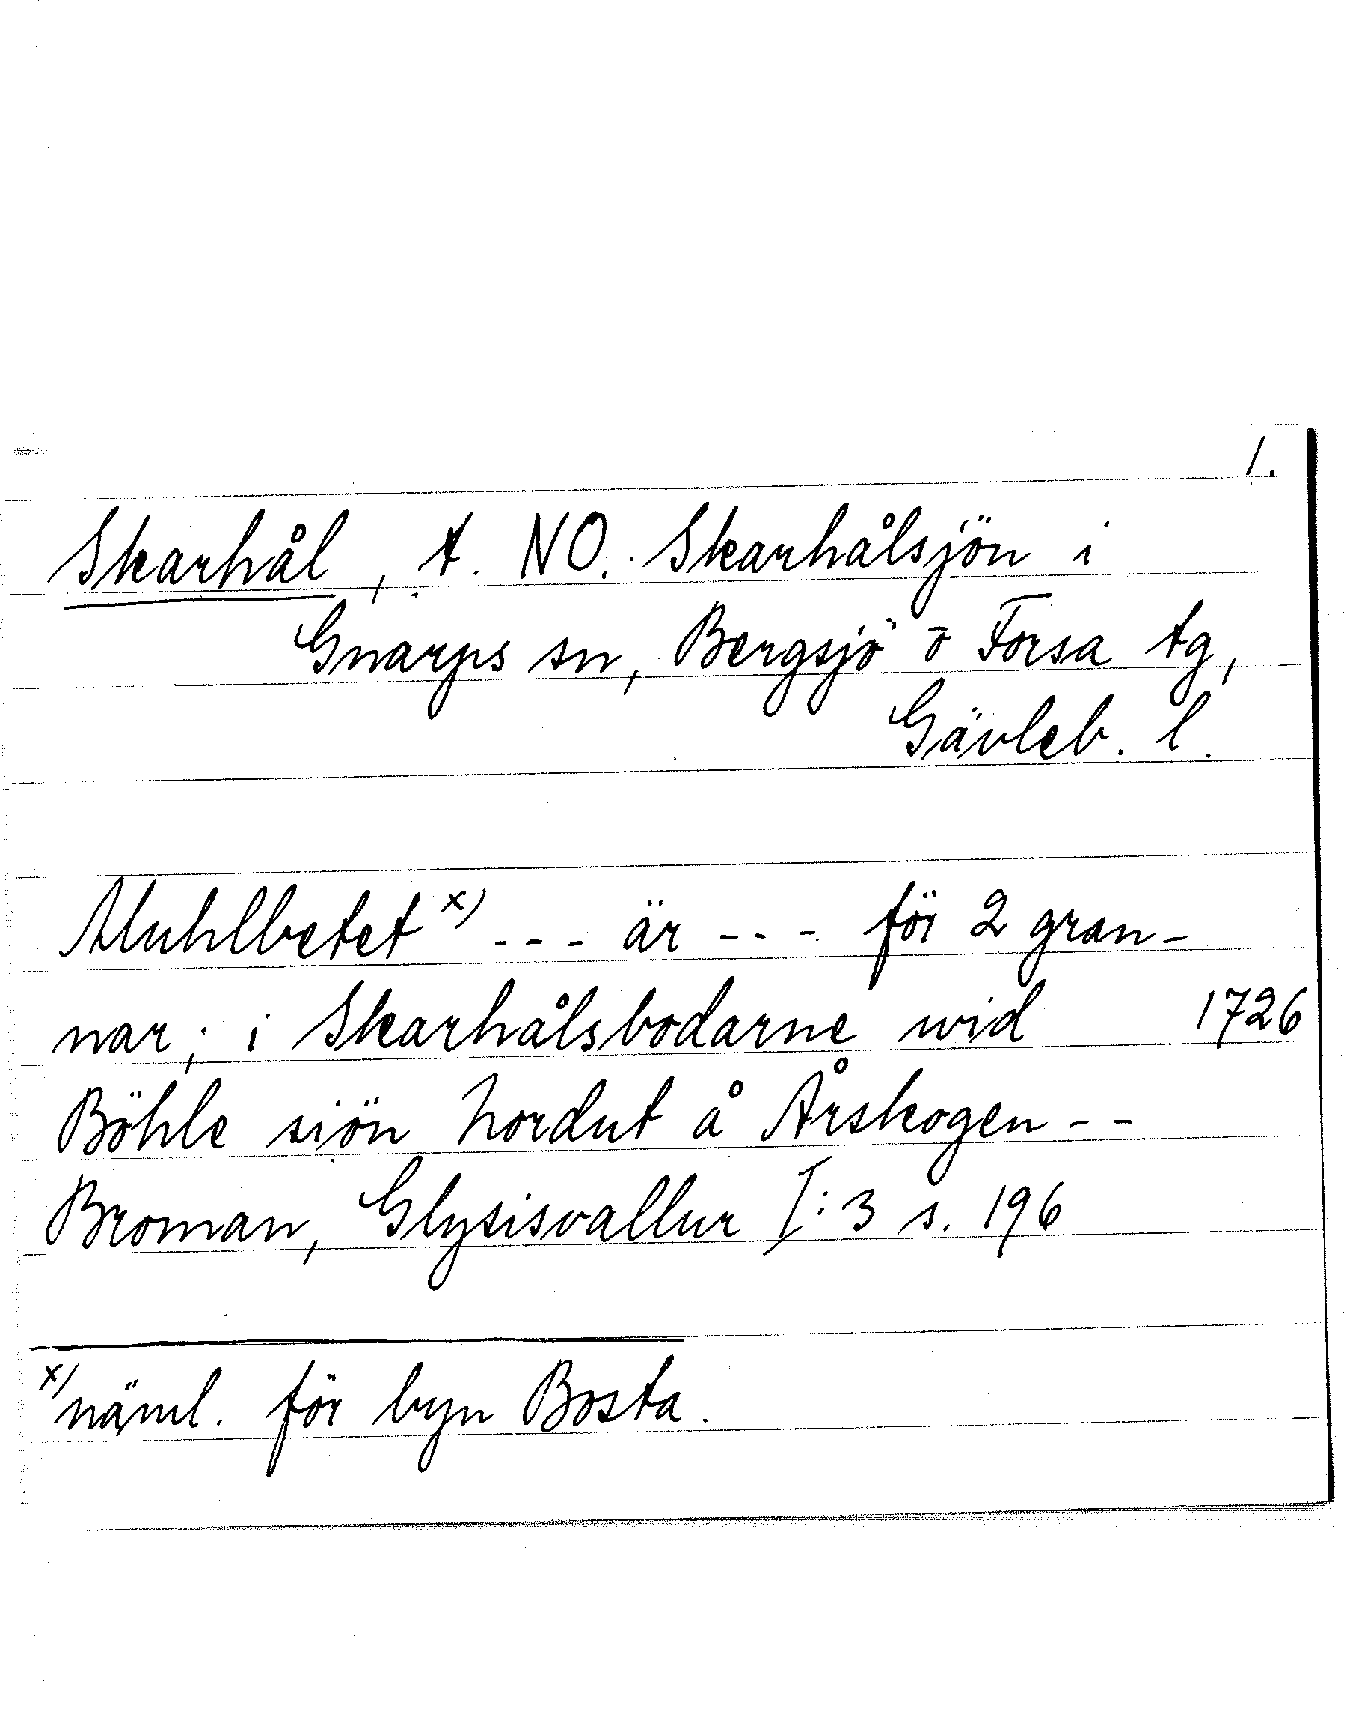 1.
Skarhål, t. NO. Skarhålsjön i
Gnarps sn, Bergsjö o Forsa tg,
Gävleb. l.
Muhlbetet x) --- är --- för 2 gran-
nar; i Skarhålsbodarne wid 1726
Böhle siön Nordut å Årskogen --
Broman, Glysisvallur I:3 s. 196
x) näml. för byn Bosta.